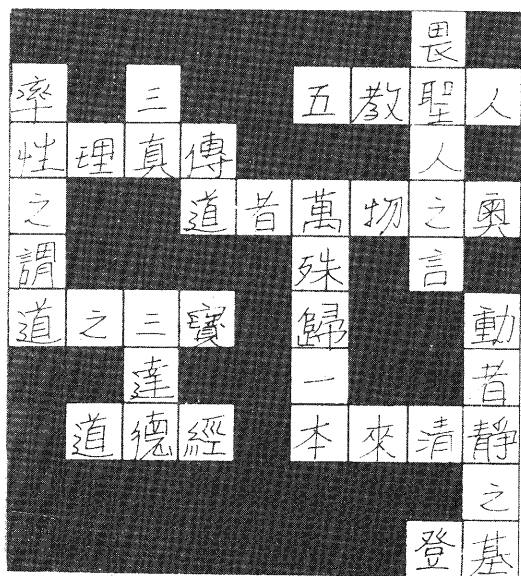 畏
率 三 五教聖人
性理真傳 人
之 道者萬物之奧
謂 殊 言
道之三寶 歸 動
達 一 者
道德經 本來清靜
之
登基